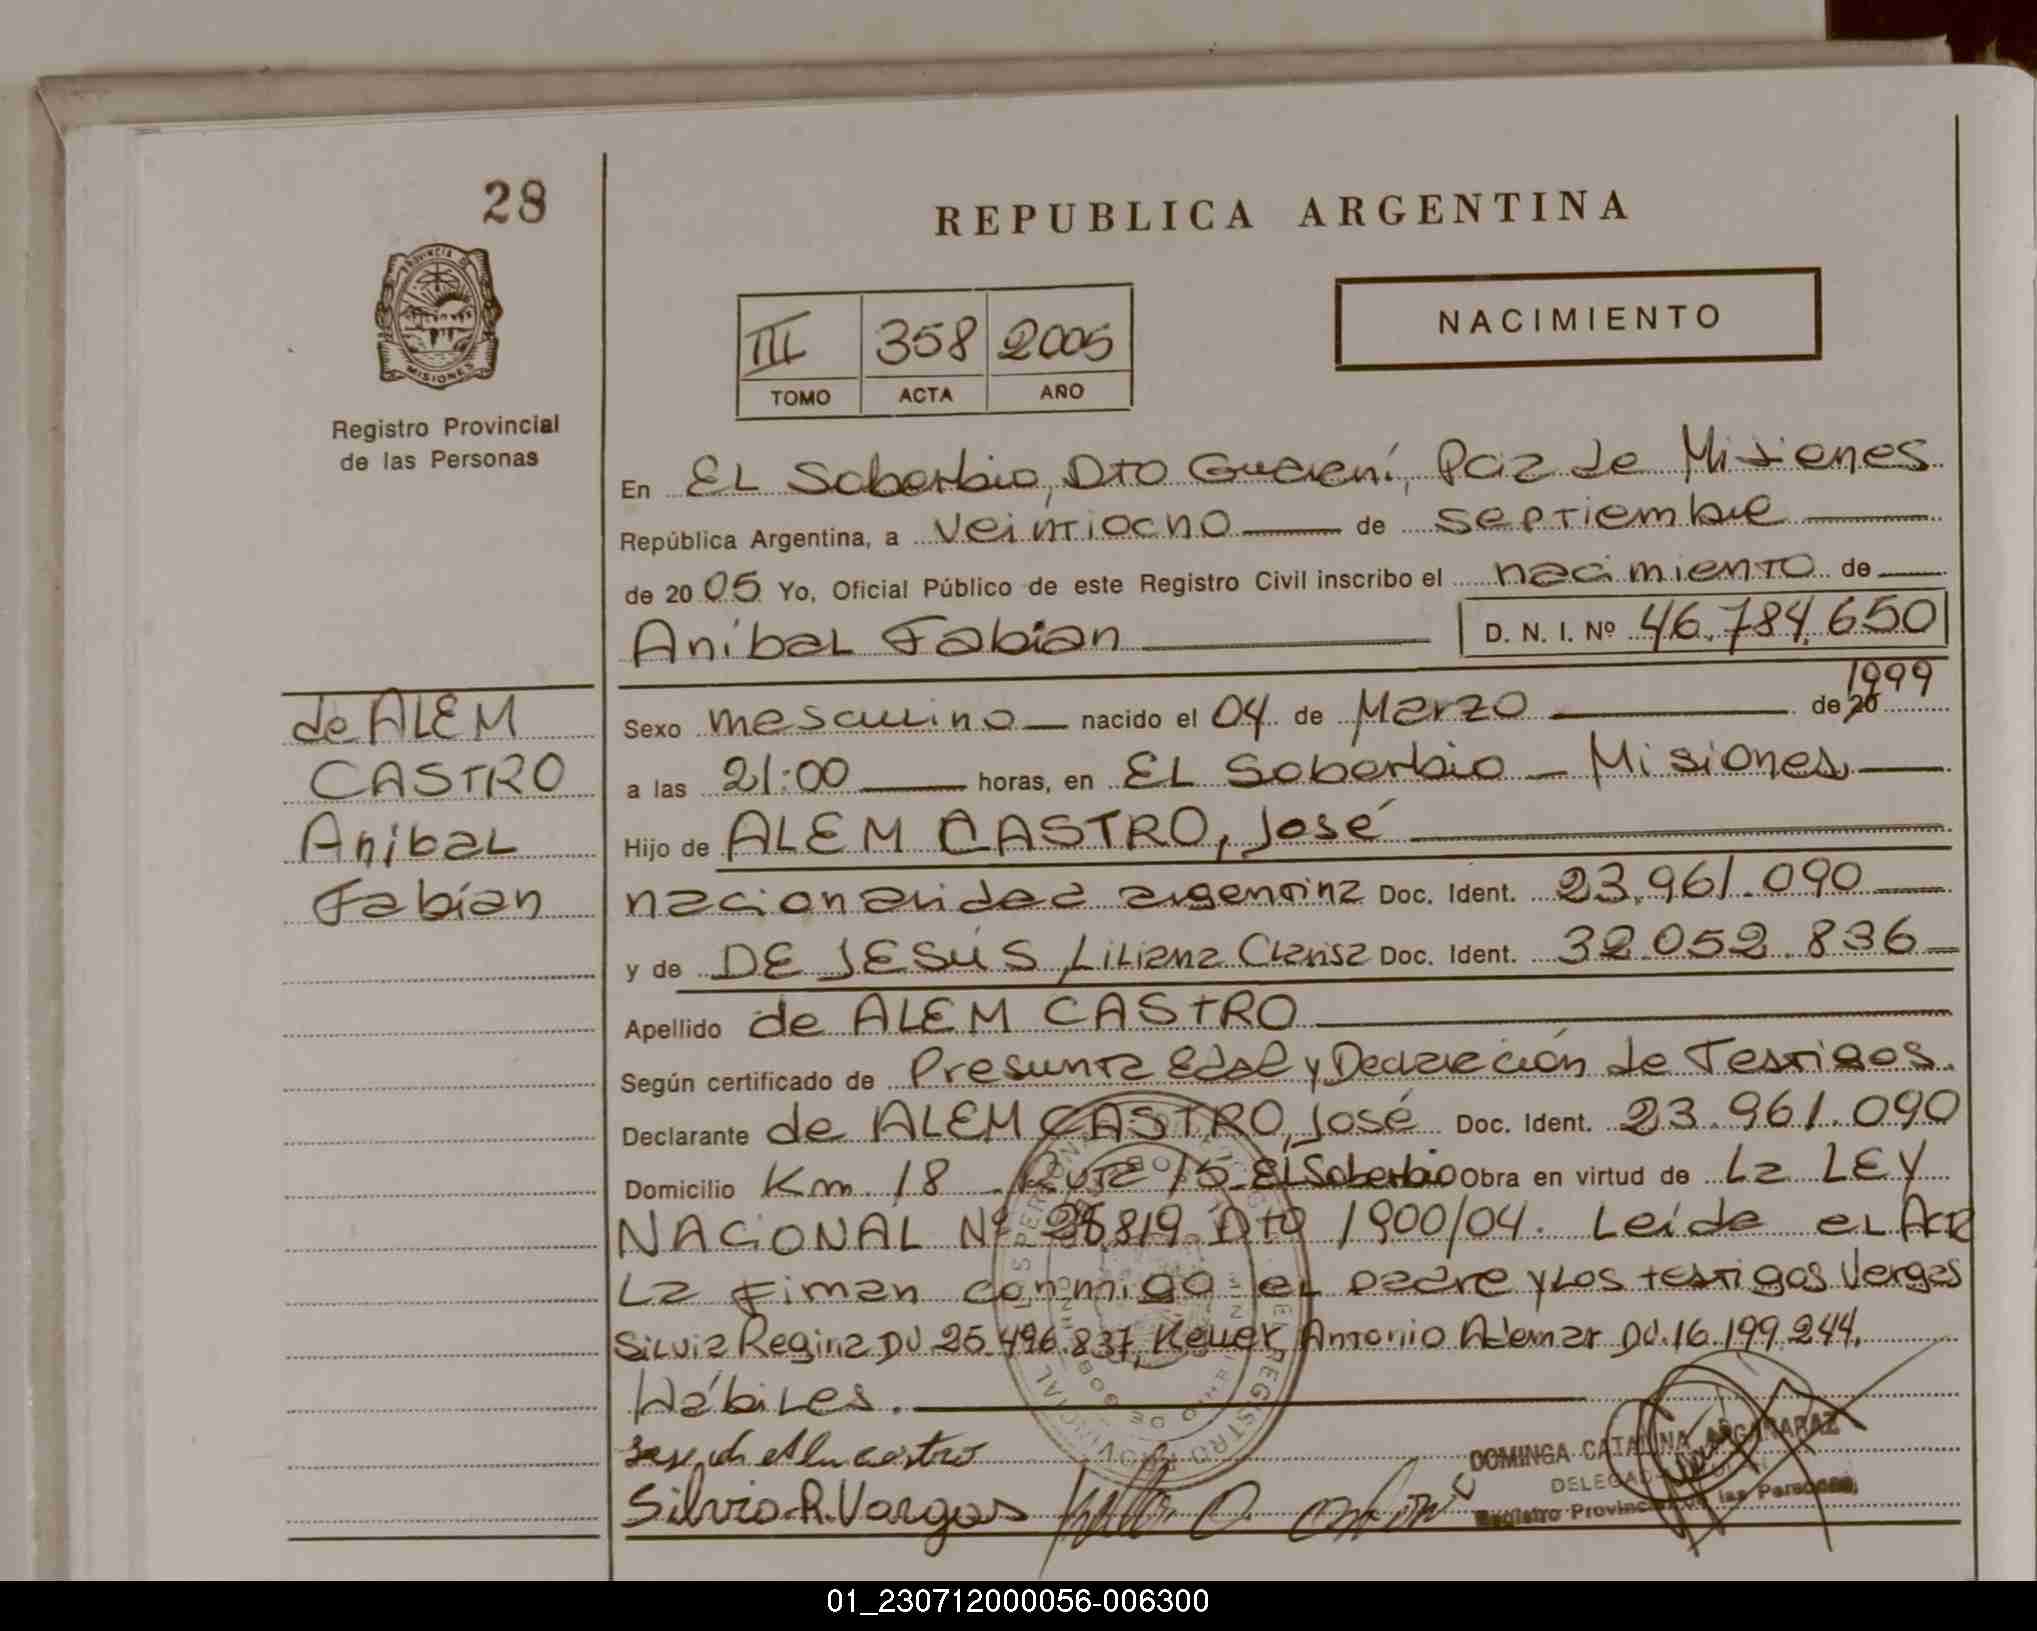 28
REPUBLICA ARGENTINA
PROVINCIA DE
MISIONES
Registro Provincial
de las Personas
III 358 2005
TOMO ACTA AÑO
NACIMIENTO
En EL Soberbio, Dto Guaraní, Pcia de Misiones
República Argentina, a veintiocho de septiembre
de 2005 Yo, Oficial Público de este Registro Civil inscribo el nacimiento de
Aníbal Fabian D. N. I. Nº 46.784.650
de ALEM
CASTRO
Anibal
Fabían
Sexo masculino nacido el 04 de Marzo de 20 1999
a las 21:00 horas, en EL Soberbio - Misiones
Hijo de ALEM CASTRO, José
nacionalidad argentina Doc. Ident. 23.961.090
y de DE JESÚS, Liliana Clarisa Doc. Ident. 32.052.836
Apellido de ALEM CASTRO
Según certificado de Presunta Edad y Declaración de Testigos.
Declarante de ALEM CASTRO, José Doc. Ident. 23.961.090
Domicilio Km 18 Ruta 15 El Soberbio Obra en virtud de La LEY
NACIONAL Nº 25819 Dto 1900/04. Leída el Acta
La Fiman conmigo el padre y Los testigos Vargas
Silvia Regina DU 25.496.837, Keller, Antonio Ademar DU.16.199.244.
Hábiles.
Silvia R. Vargas
DOMINGA CATALINA ARGAÑARAZ
DELEGADA
Registro Provincial de las Personas
01_230712000056-006300